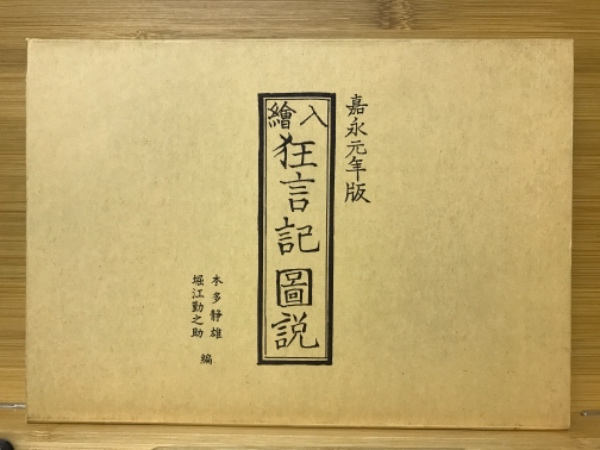 嘉永元年版
繪入
狂言記圖説
本多靜雄
堀江勤之助
編